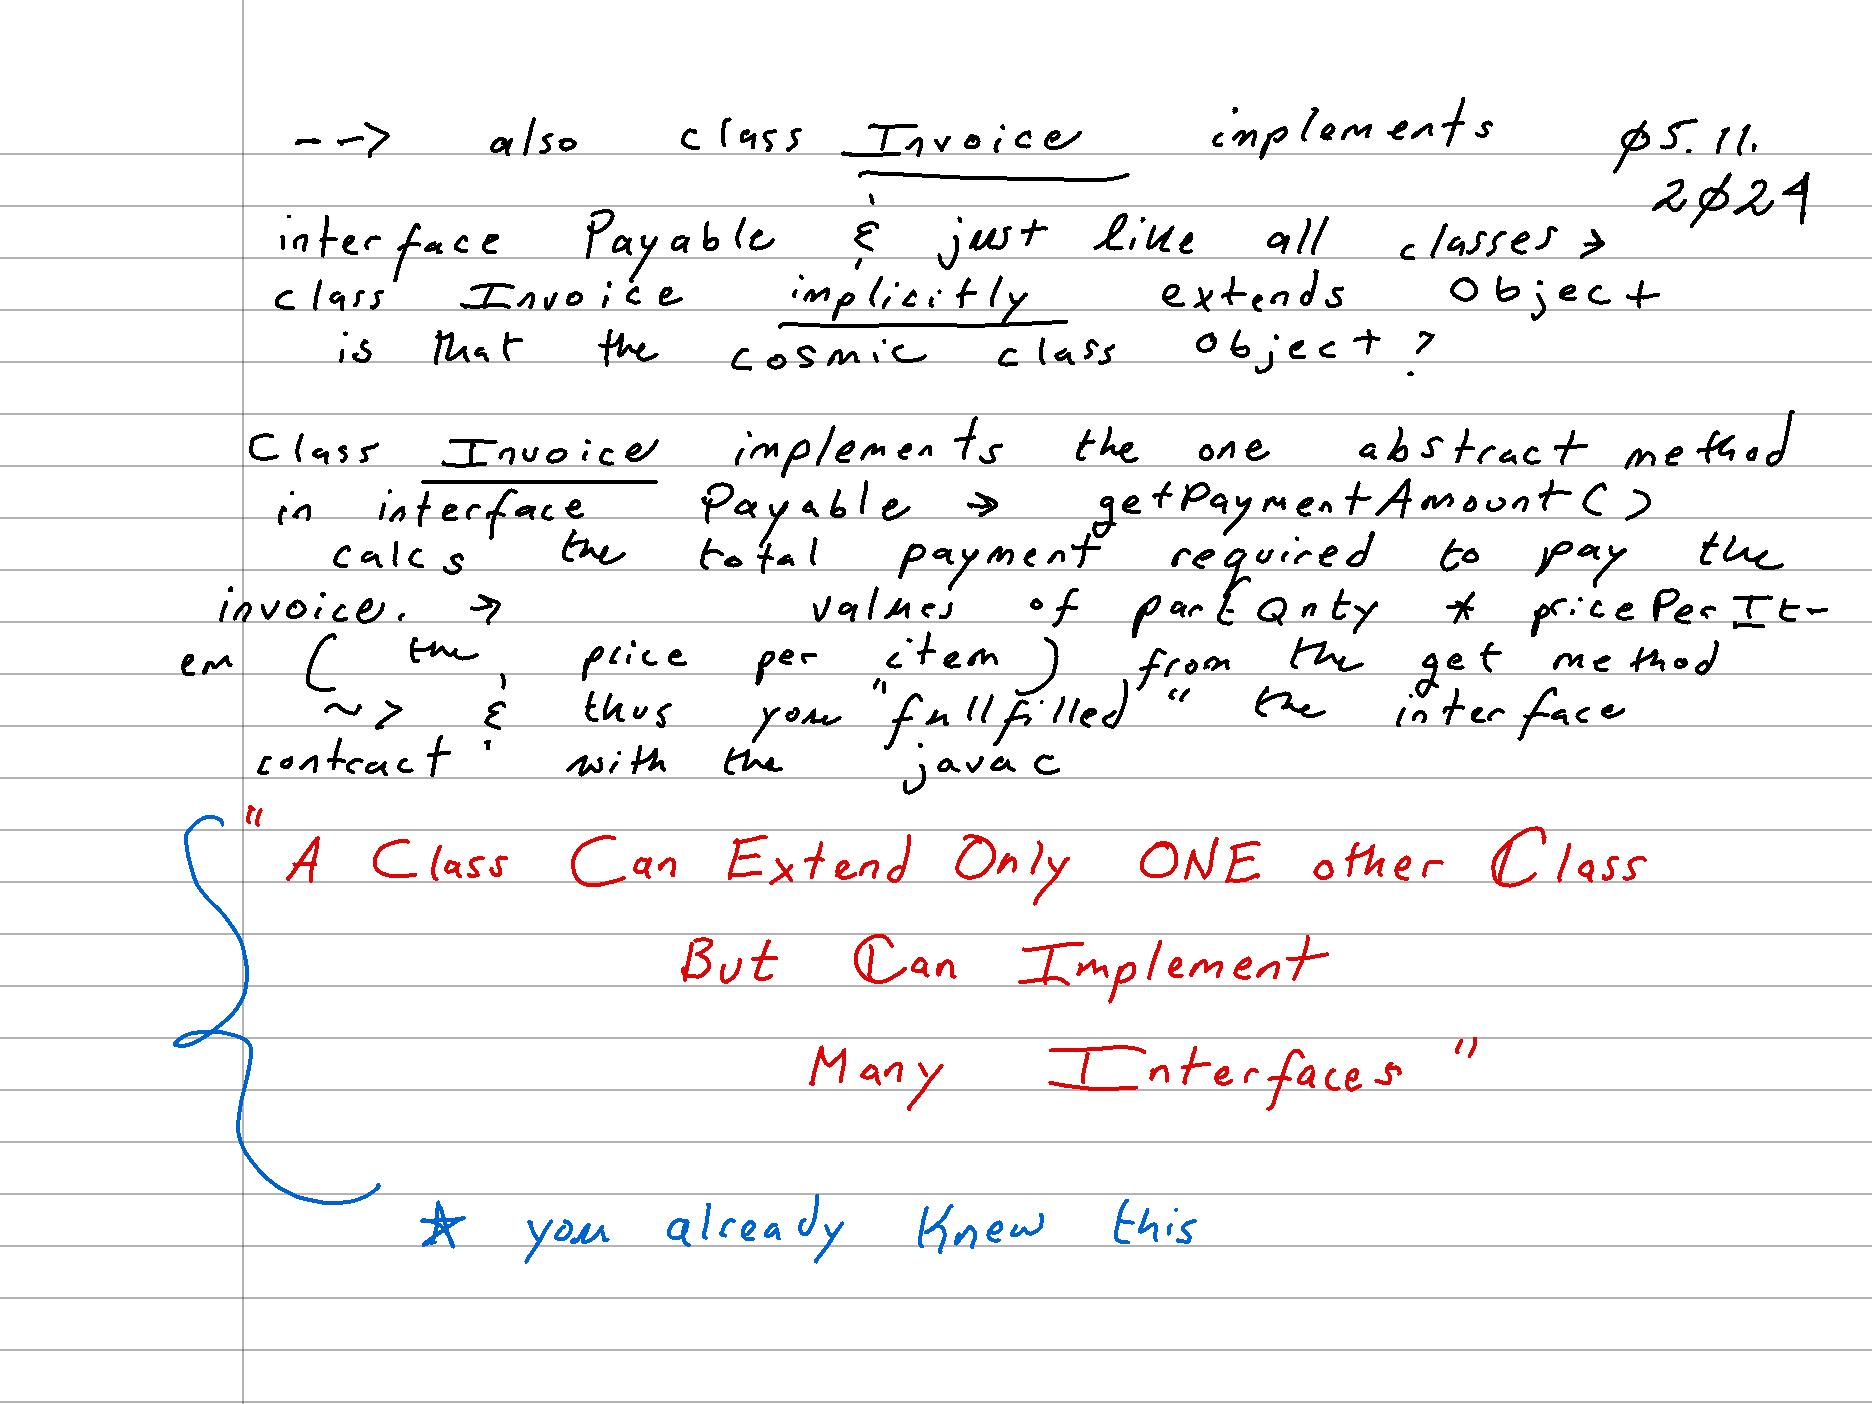 --> also class Invoice implements ø5.11.
2ø24
interface Payable & just like all classes →
class Invoice implicitly extends Object
is that the cosmic class Object?
Class Invoice implements the one abstract method
in interface Payable → getPaymentAmount()
calcs the total payment required to pay the
invoice. → values of partQnty * pricePerIt-
em (the price per item) from the get method
~> & thus you "fullfilled" the interface
contract with the javac
"A Class Can Extend Only ONE other Class
But Can Implement
Many Interfaces"
★ you already knew this